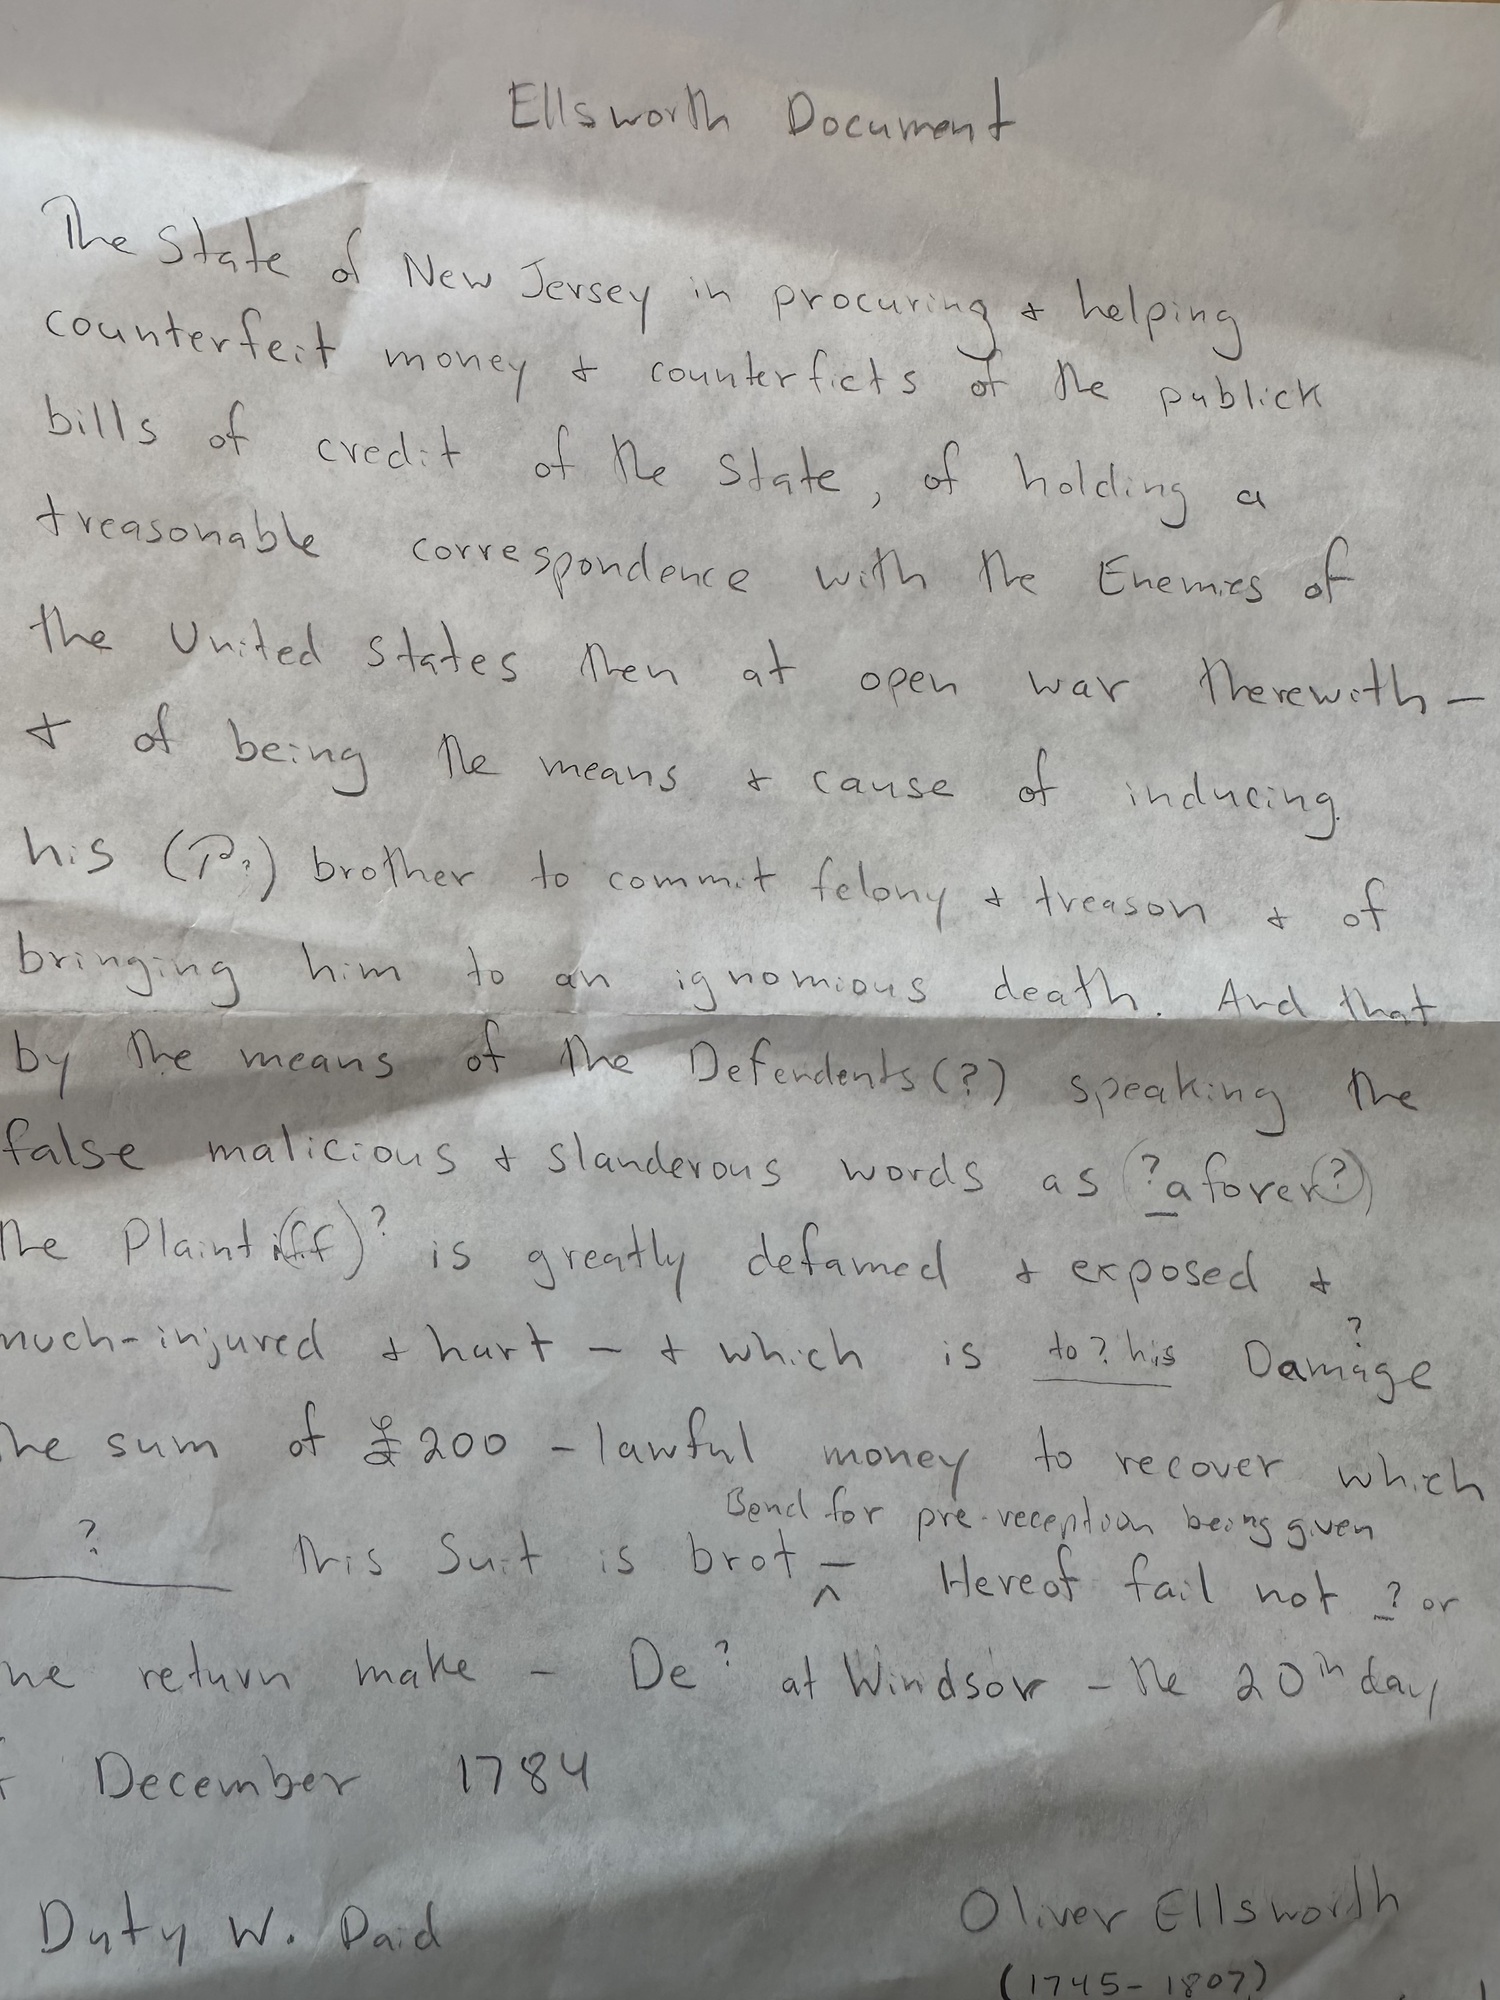 Ellsworth Document
The State of New Jersey in procuring & helping
counterfeit money & counterficts of the publick
bills of credit of the State, of holding a
treasonable correspondence with the Enemies of
the United States then at open war therewith –
& of being the means & cause of inducing
his (P?) brother to commit felony & treason & of
bringing him to an ignomious death. And that
by the means of the Defendents (?) speaking the
false malicious & slanderous words as (? aforer?)
the Plaintiff)? is greatly defamed & exposed &
much-injured & hurt – & which is to? his Damage ?
he sum of £200 – lawful money to recover which
Bond for pre-reception being given
? This Suit is brot – ^ Hereof fail not ? or
he return make – De? at Windsor – the 20th day
December 1784
Duty W. Paid
Oliver Ellsworth
(1745-1807)